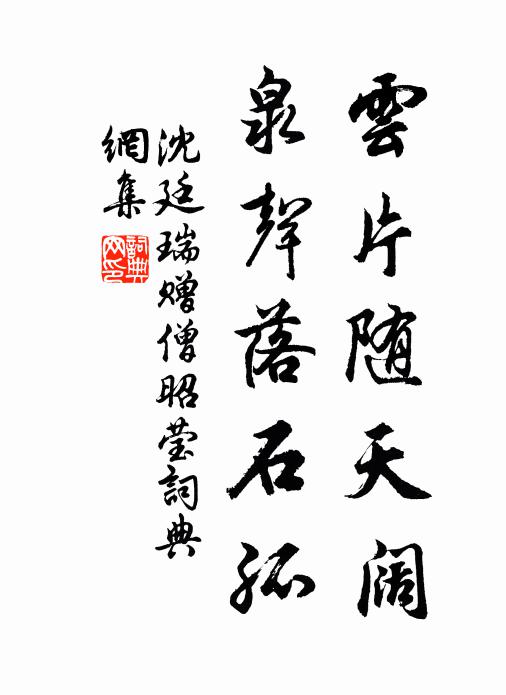 雲片随天阔
泉聲落石孤
沈廷瑞贈僧昭莹詞典
網集
詞典
网印